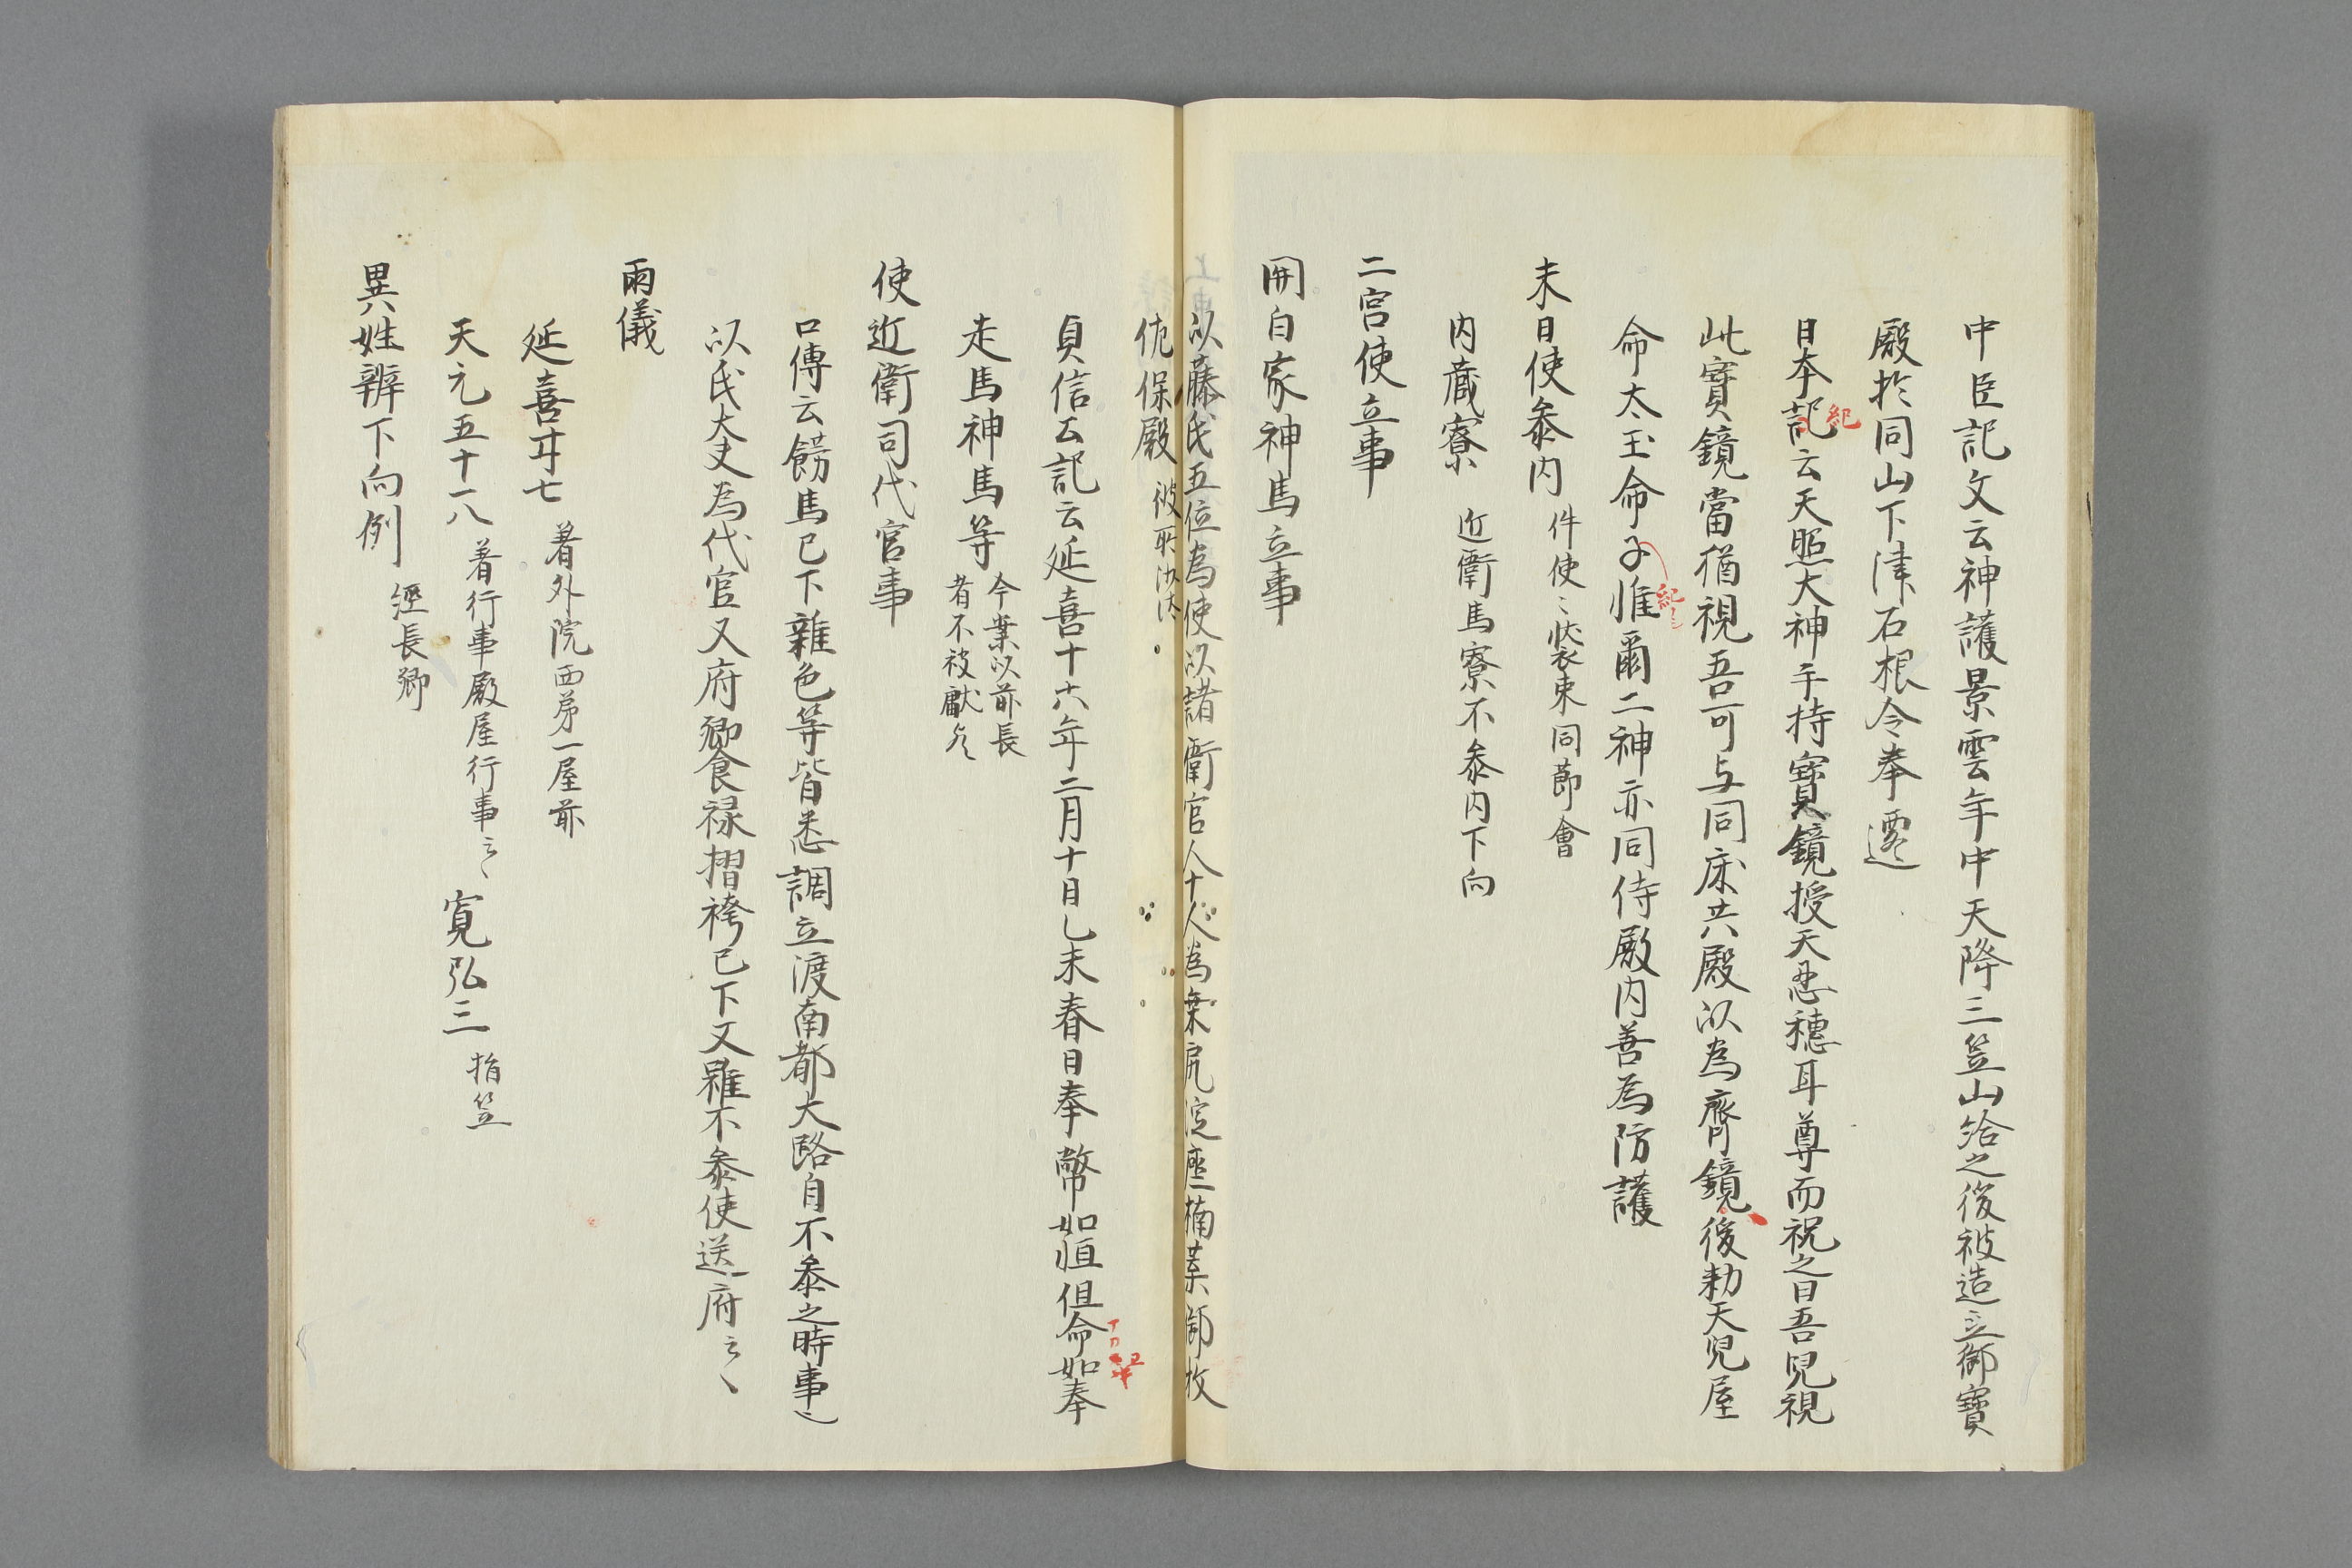 中臣記文云神護景雲年中天降三笠山給之後被造立御寶
殿於同山下津石根令奉遷
日本記云天照大神手持寶鏡授天忍穗耳尊而祝之曰吾兒視
紀
此寶鏡當猶視吾可与同床共殿以為齊鏡後勅天兒屋
命太玉命子惟爾二神亦同侍殿内善為防護
紀
未日使参内 件使〻裝束同節會
内蔵寮 近衛馬寮不参内下向
二宮使立事
関白家神馬立事
以藤氏五位為使以諸衛官人十人為乗尻淀座楠葉御牧
佐保殿
貞信公記云延喜十六年二月十日乙未春日奉幣如恒但命如奉
走馬神馬等 今葉以前長
者不被献矣
使近衛司代官事
口傳云餝馬已下雜色等皆悉調立渡南都大路自不参之時事也
以氏大夫為代官又府卿食禄摺袴已下又雖不参使送府云〻
雨儀
延喜廿七 着外院西第一屋前
天元五十一八 着行事殿屋行事云〻 寛弘三 指笠
異姓辨下向例 經長卿